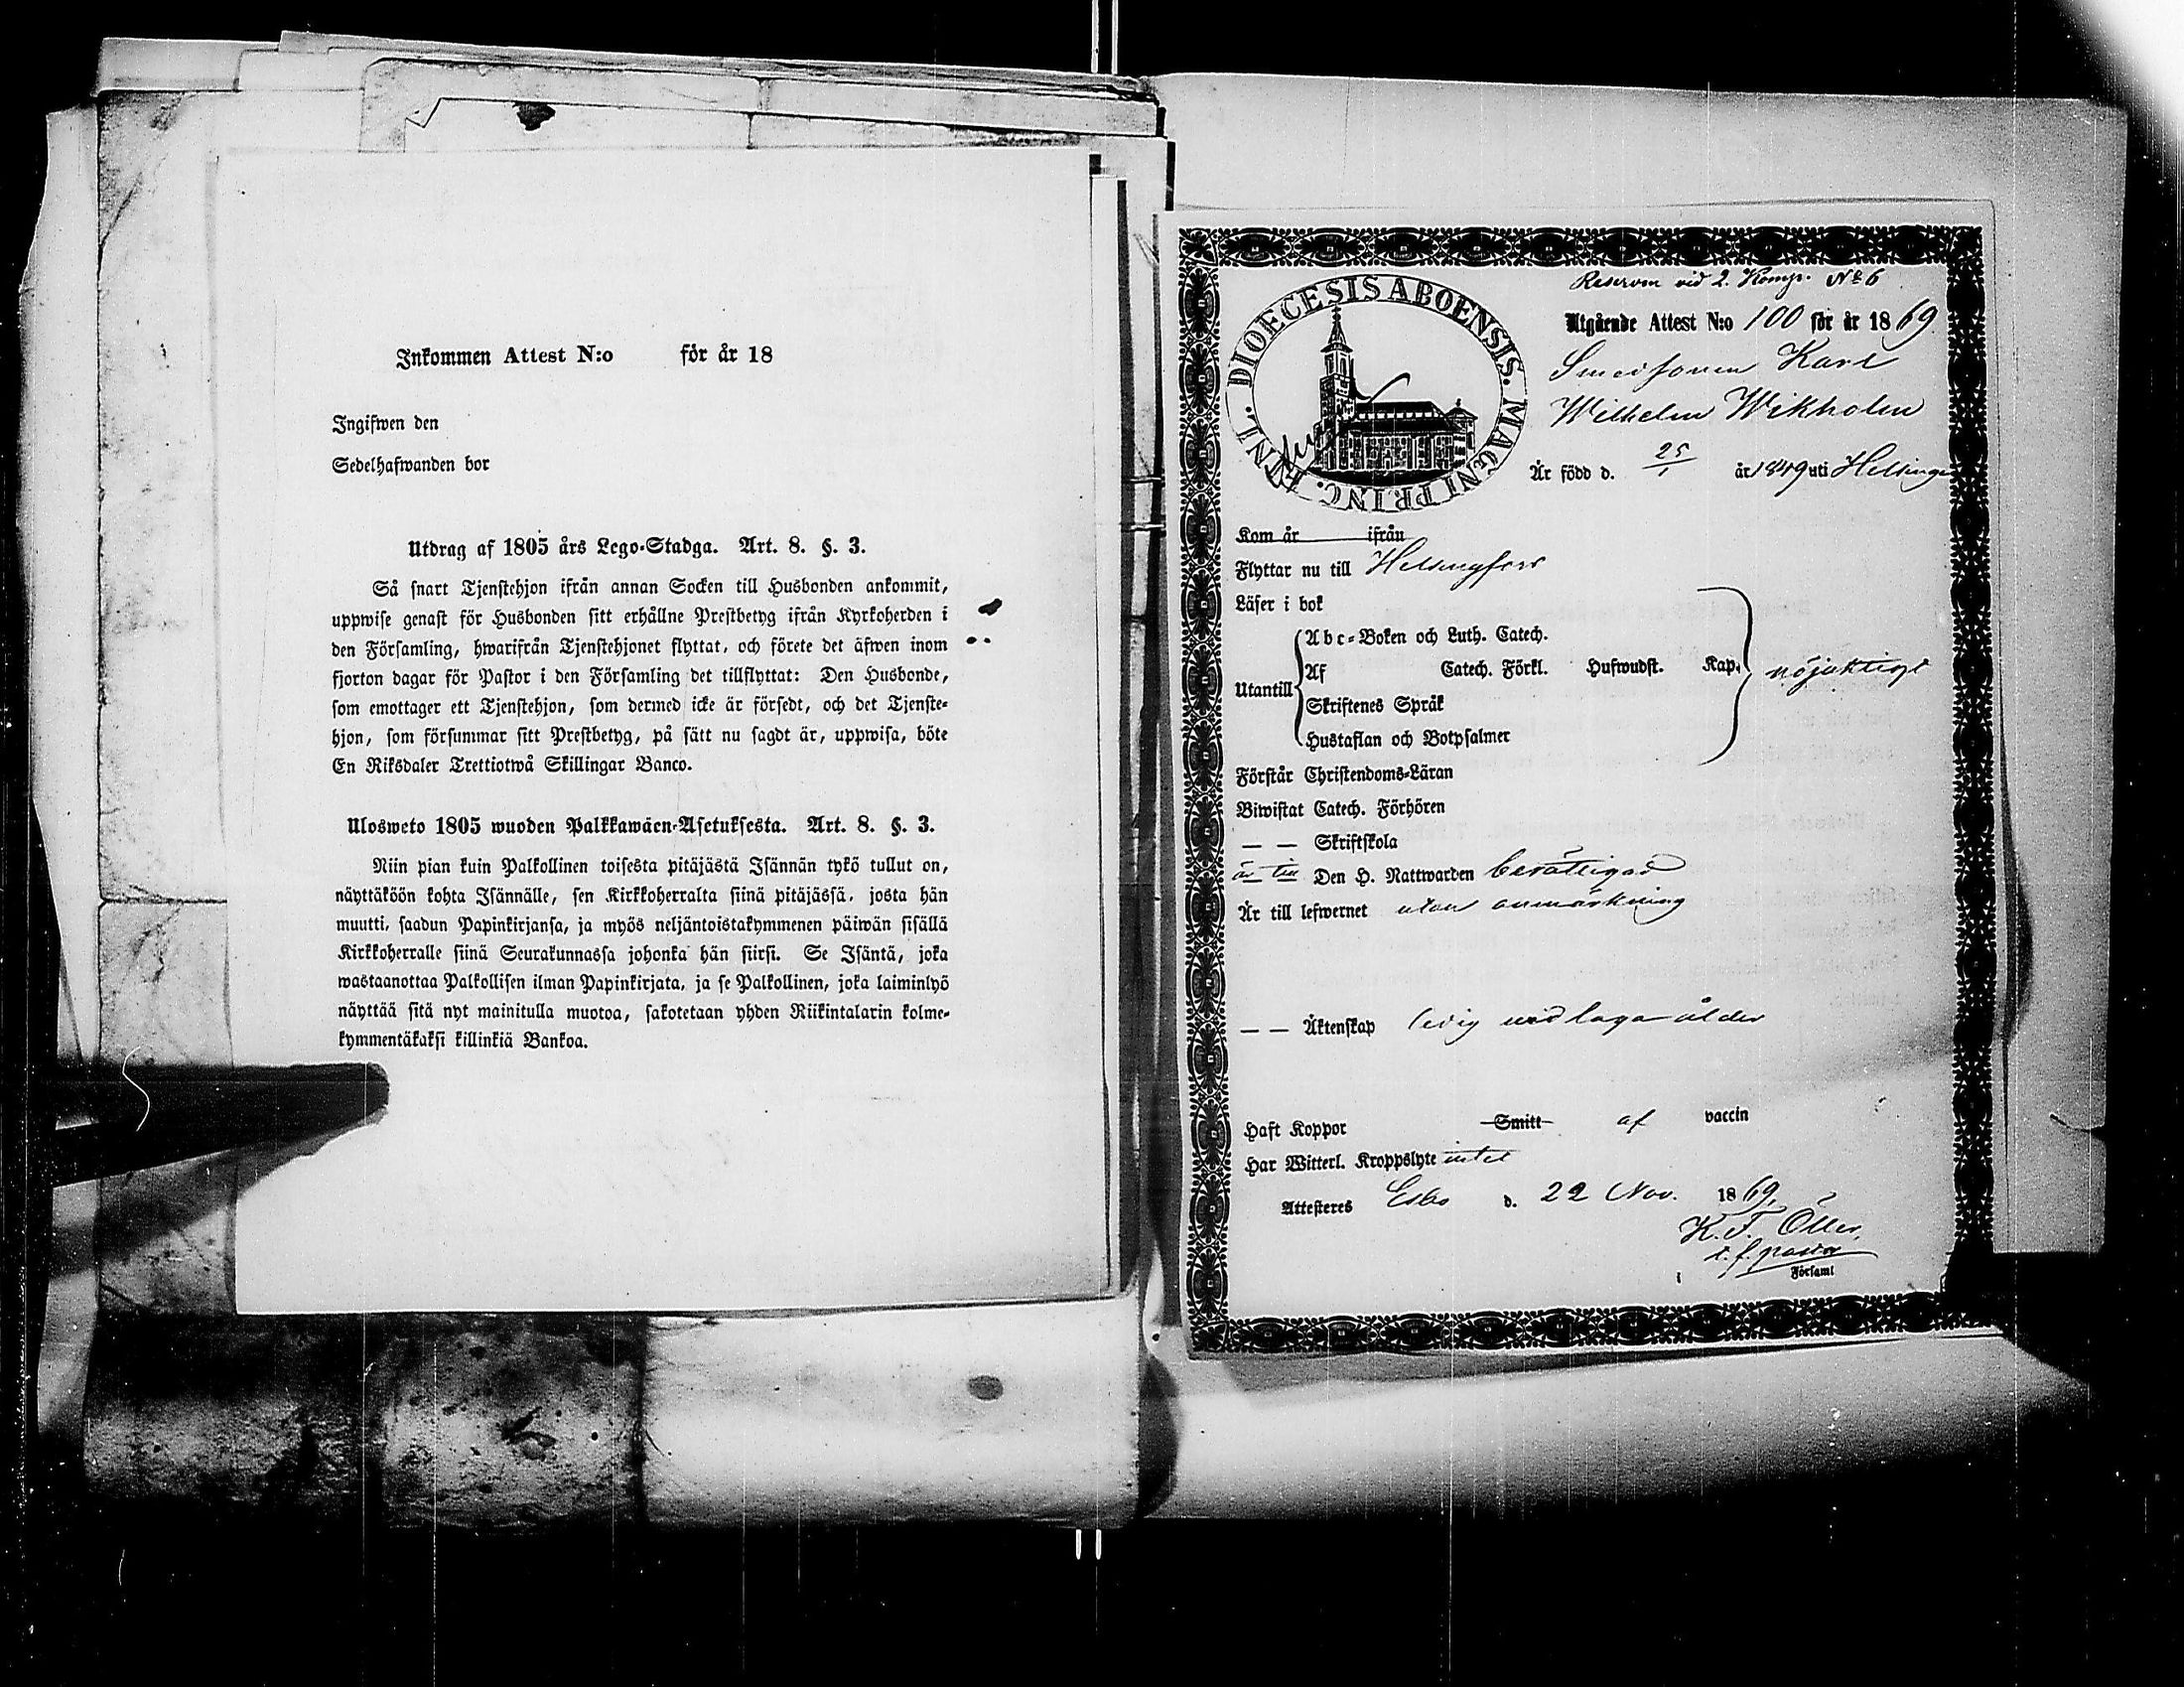 Inkommen Attest N:o för år 18
Ingifwen den
Sedelhafwanden bor
Utdrag af 1805 års Lego-Stadga. Art. 8. §. 3.
Så snart Tjenstehjon ifrån annan Socken till Husbonden ankommit,
uppwise genast för Husbonden sitt erhållne Prestbetyg ifrån Kyrkoherden i
den Församling, hwarifrån Tjenstehjonet flyttat, och förete det äfwen inom
fjorton dagar för Pastor i den Församling det tillflyttat: Den Husbonde,
som emottager ett Tjenstehjon, som dermed icke är försedt, och det Tjenste-
hjon, som försummar sitt Prestbetyg, på sätt nu sagdt är, uppwisa, böte
En Riksdaler Trettiotwå Skillingar Banco.
Ulosweto 1805 wuoden Palkkawäen-Asetuksesta. Art. 8. §. 3.
Niin pian kuin Palkollinen toisesta pitäjästä Isännän tykö tullut on,
näyttäköön kohta Isännälle, sen Kirkkoherralta siinä pitäjässä, josta hän
muutti, saadun Papinkirjansa, ja myös neljäntoistakymmenen päiwän sisällä
Kirkkoherralle siinä Seurakunnassa johonka hän siirsi. Se Isäntä, joka
wastaanottaa Palkollisen ilman Papinkirjata, ja se Palkollinen, joka laiminlyö
näyttää sitä nyt mainitulla muotoa, sakotetaan yhden Riikintalarin kolme-
kymmentäkaksi killinkiä Bankoa.
DIOECESIS ABOENSIS. MAGNI PRINC. FINL.
Reserven vid 2. Komp. No 6
Utgående Attest N:o 100 för år 1869
Smedsonen Karl
Wilhelm Wikholm
Är född d. 25/1 år 1849 uti Helsinge
Kom år ifrån
Flyttar nu till Helsingfors
Läser i bok
Utantill
Abc-Boken och Luth. Catech.
Af Catech. Förkl. Hufwudst. Kap.
nöjaktigt
Skriftenes Språk
Hustaflan och Botpsalmer
Förstår Christendoms-Läran
Biwistat Catech. Förhören
— — Skriftskola
är till Den H. Nattwarden berättigad
Är till lefwernet utan anmärkning
— — Äktenskap ledig vid laga ålder
Haft Koppor Smitt af vaccin
Har Witterl. Kroppslyte intet
Attesteres Esbo d. 22 Nov. 1869,
K. F. Öller,
t. f. pastor
Församl